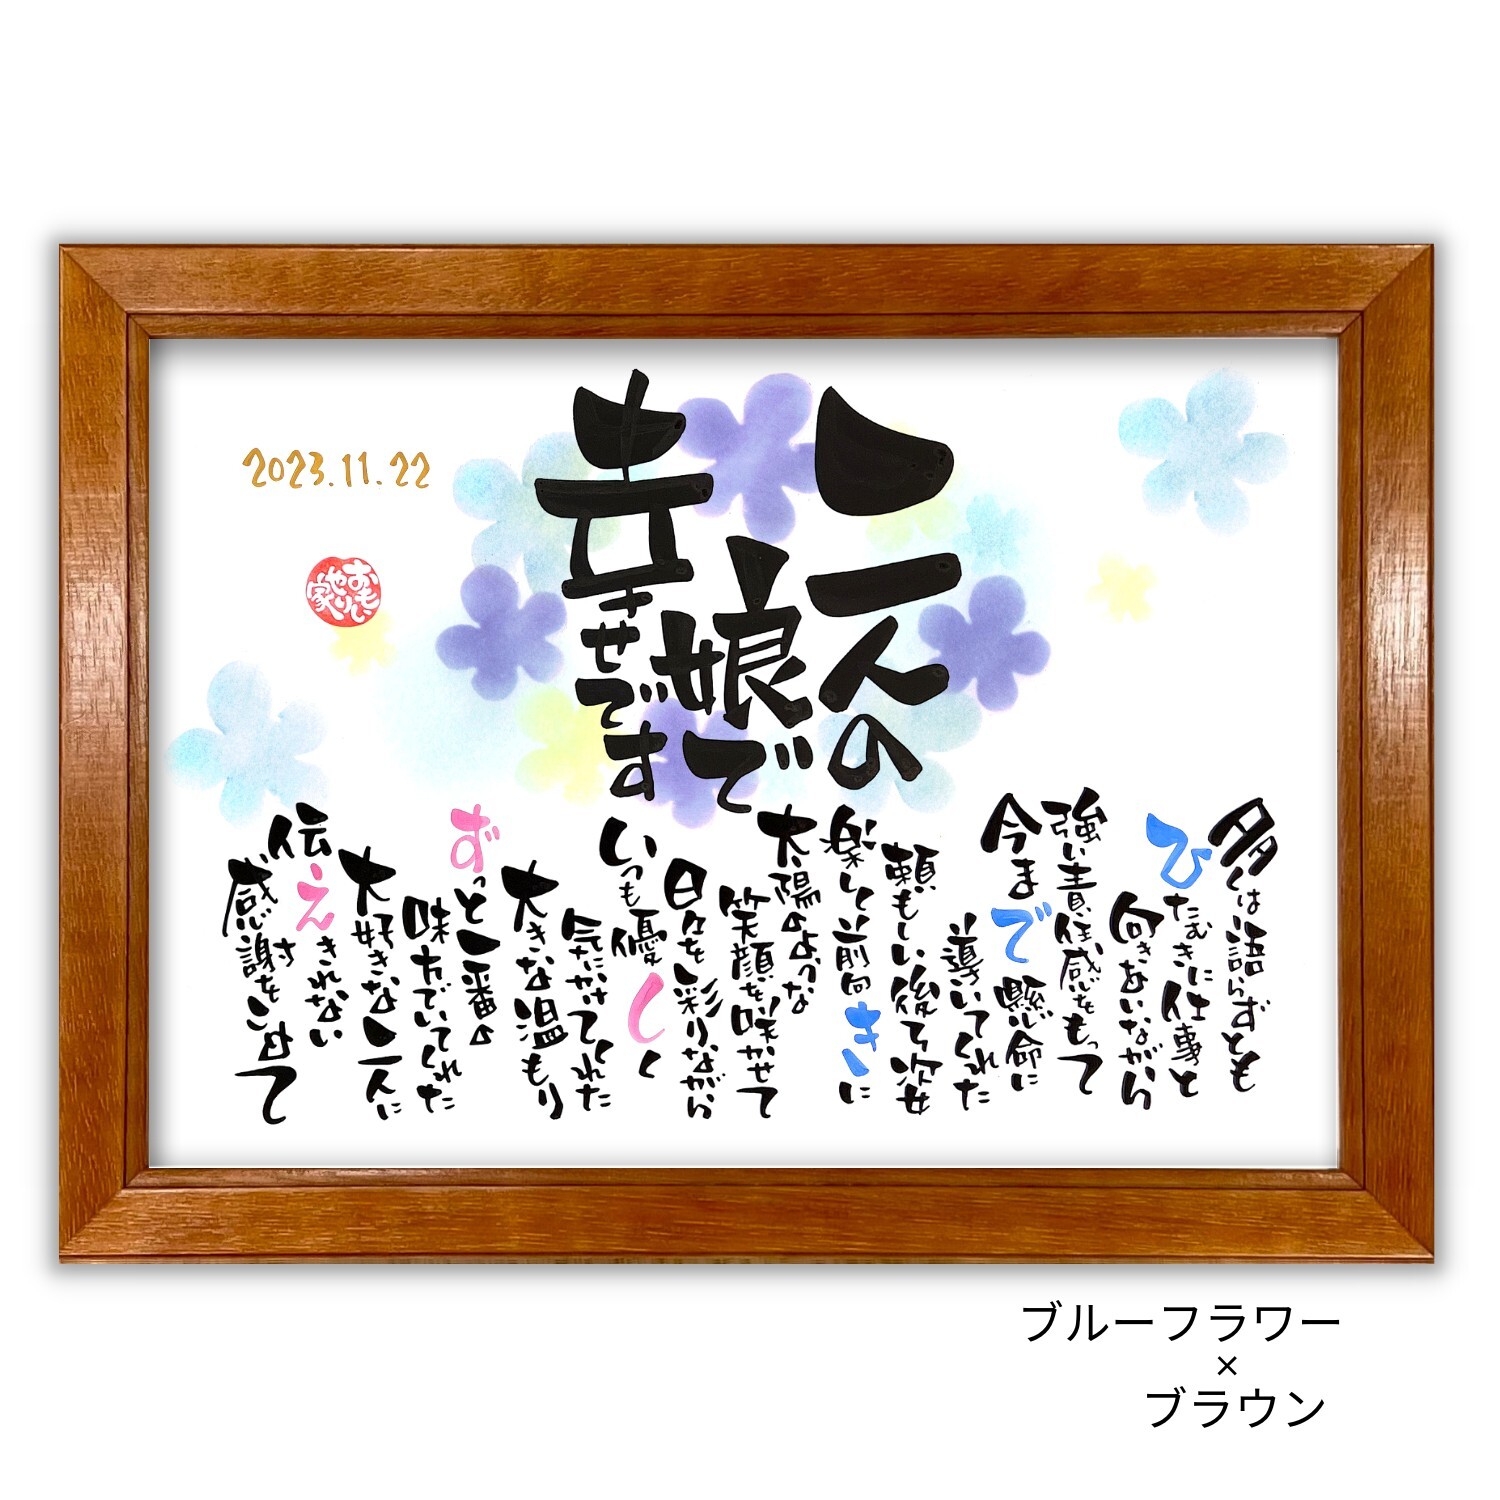 二人の
娘で
幸せです
2023.11.22
おもい
やり
家
多くは語らずとも
ひたむきに仕事と
向きあいながら
強い責任感をもって
今まで懸命に
導いてくれた
頼もしい後ろ姿
楽しく前向きに
太陽のような
笑顔を咲かせて
日々を彩りながら
いつも優しく
気にかけてくれた
大きな温もり
ずっと一番の
味方でいてくれた
大好きな二人に
伝えきれない
感謝をこめて
ブルーフラワー
×
ブラウン